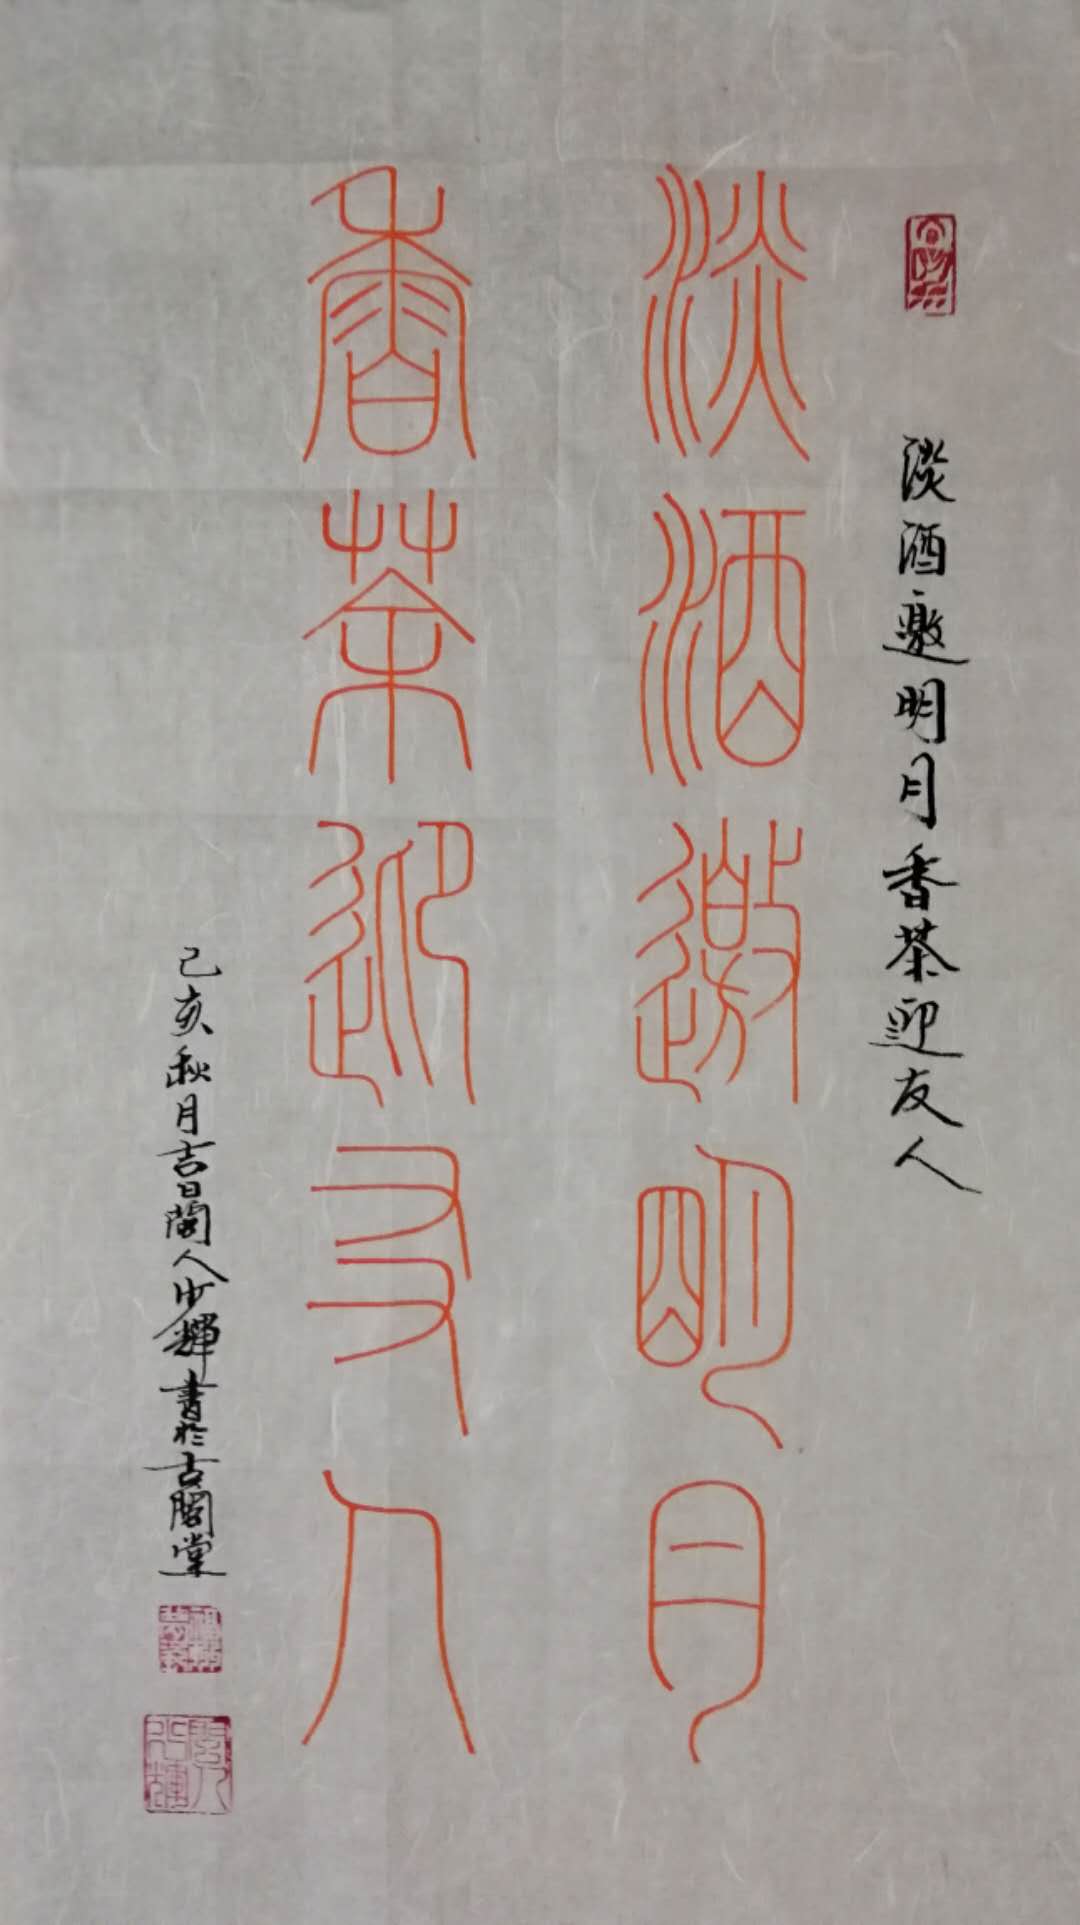 淡酒邀明月香茶迎友人
淡酒邀明月
香茶迎友人
己亥秋月吉日閩人少輝書於古堂